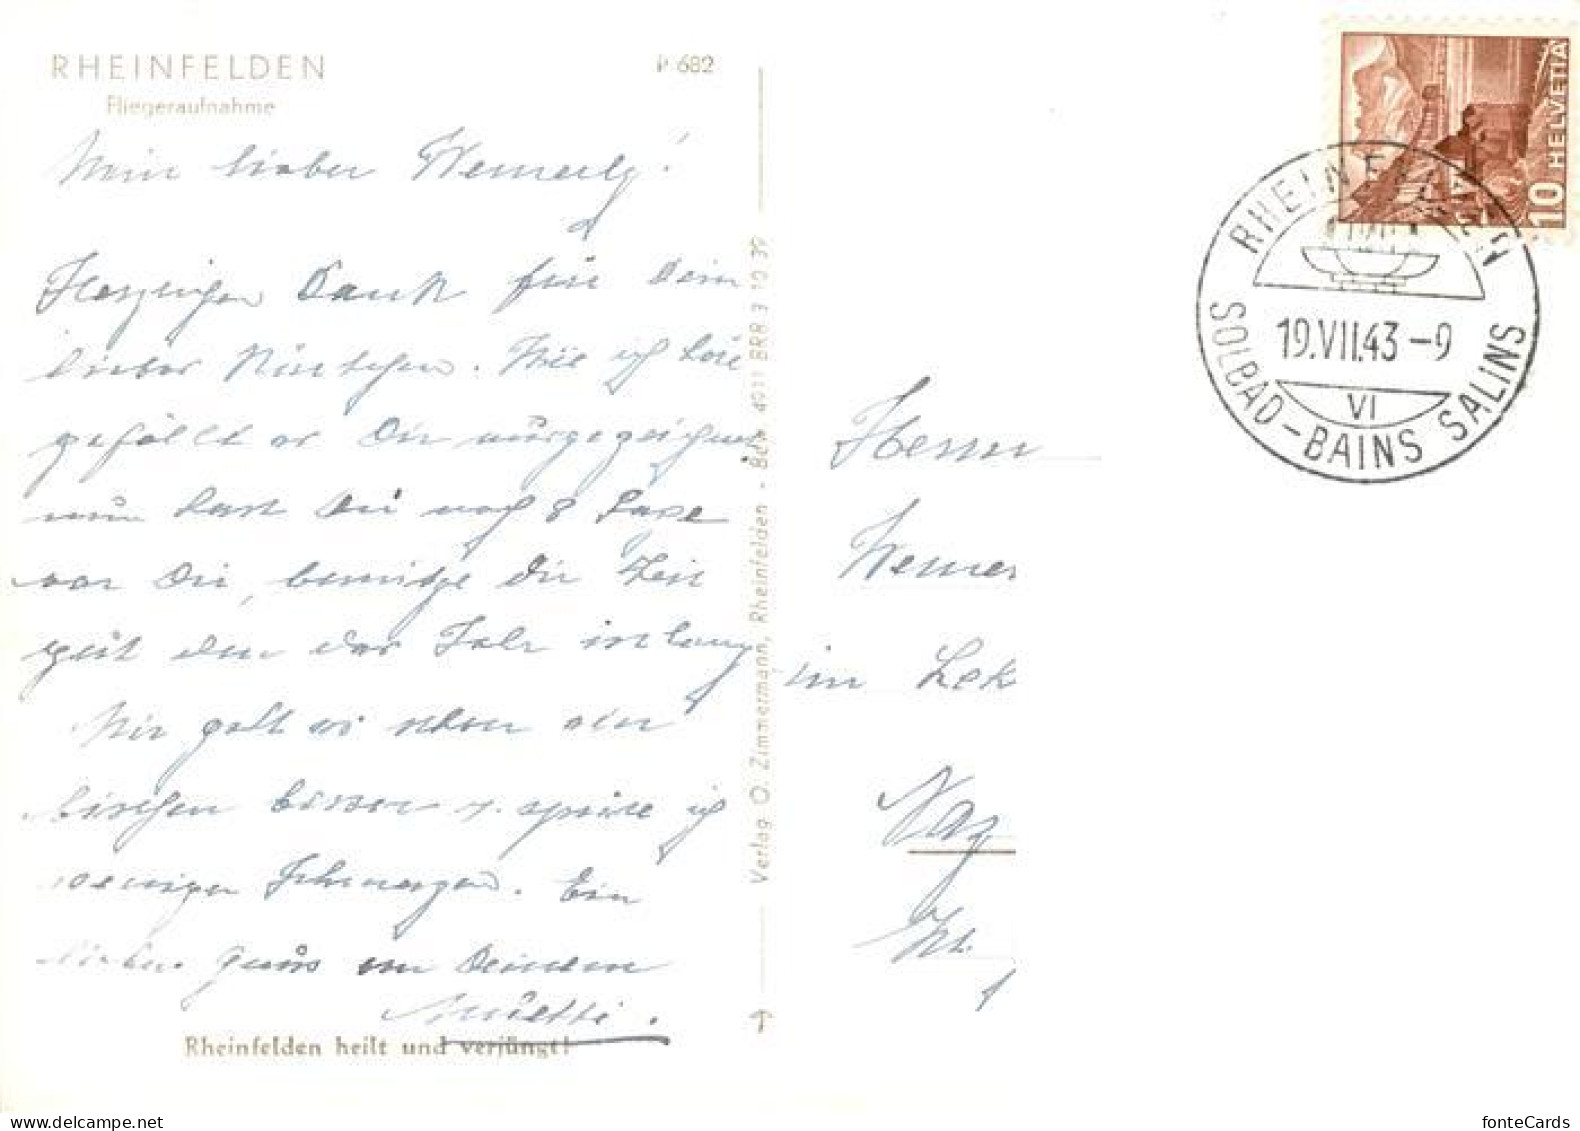 RHEINFELDEN
Fliegeraufnahme
P 682
Mein lieber Wernerly!
Herzlichen Dank für Dein
liebes Kärtchen. Wie ich höre
gefällt es Dir ausgezeichnet
nun hast Du noch 8 Tage
vor Dir, benütze die Zeit
gut denn das Jahr ist lang
Mir geht es schon ein
bischen besser u. spüre ich
weniger Schmerzen. Ein
lieber Gruss von Deinem
Muetti.
Rheinfelden heilt und verjüngt!
Verlag O. Zimmermann, Rheinfelden - Bew. 4011 BRR 3 10 39
HELVETIA
10
RHEINFELDEN
19.VII.43-9
VI
SOLBAD-BAINS SALINS
Herrn
Werner
im
fonteCards